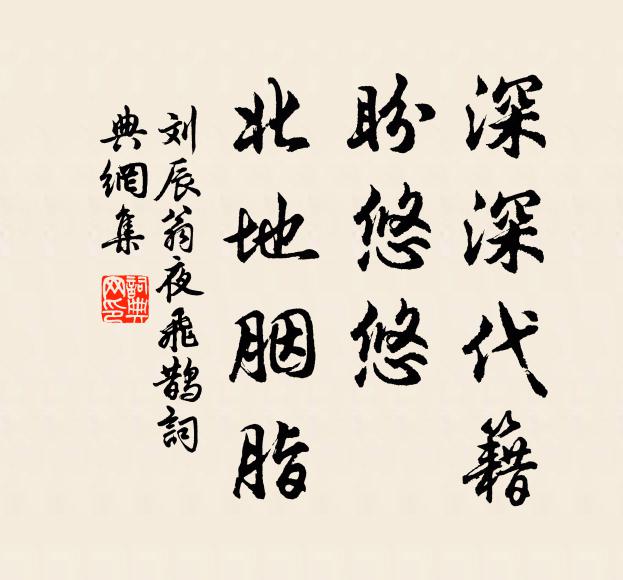 深深代籍
盼悠悠
北地胭脂
刘辰翁夜飛鵲詞
典網集
詞典
网印